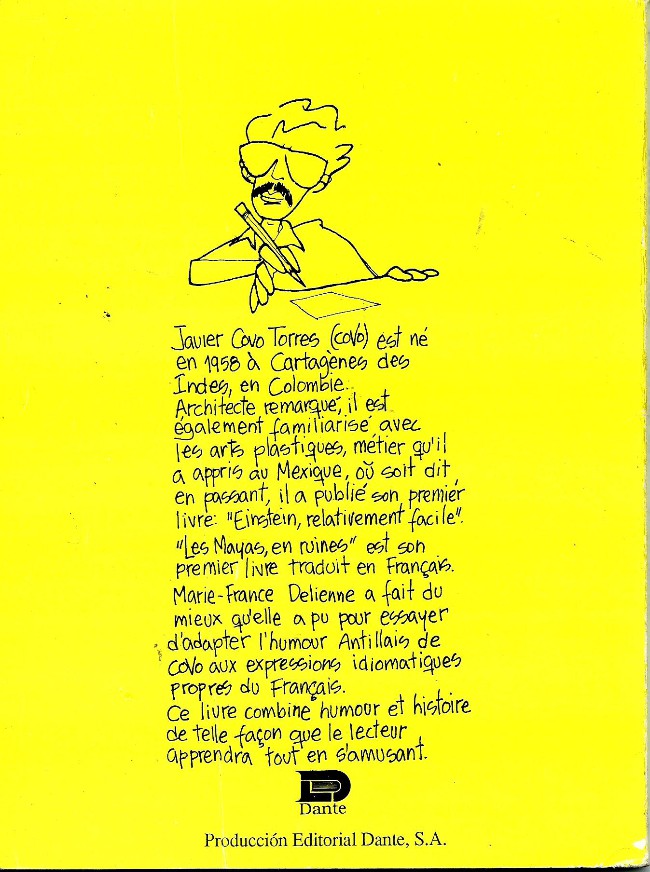 Javier Covo Torres (COVO) est né
en 1958 à Cartagènes des
Indes, en Colombie.
Architecte remarqué, il est
également familiarisé avec
les arts plastiques, métier qu'il
a appris au Mexique, où soit dit,
en passant, il a publié son premier
livre: "Einstein, relativement facile".
"Les Mayas, en ruines" est son
premier livre traduit en Français.
Marie-France Delienne a fait du
mieux qu'elle a pu pour essayer
d'adapter l'humour Antillais de
COVO aux expressions idiomatiques
propres du Français.
Ce livre combine humour et histoire
de telle façon que le lecteur
apprendra tout en s'amusant.
Dante
Producción Editorial Dante, S.A.